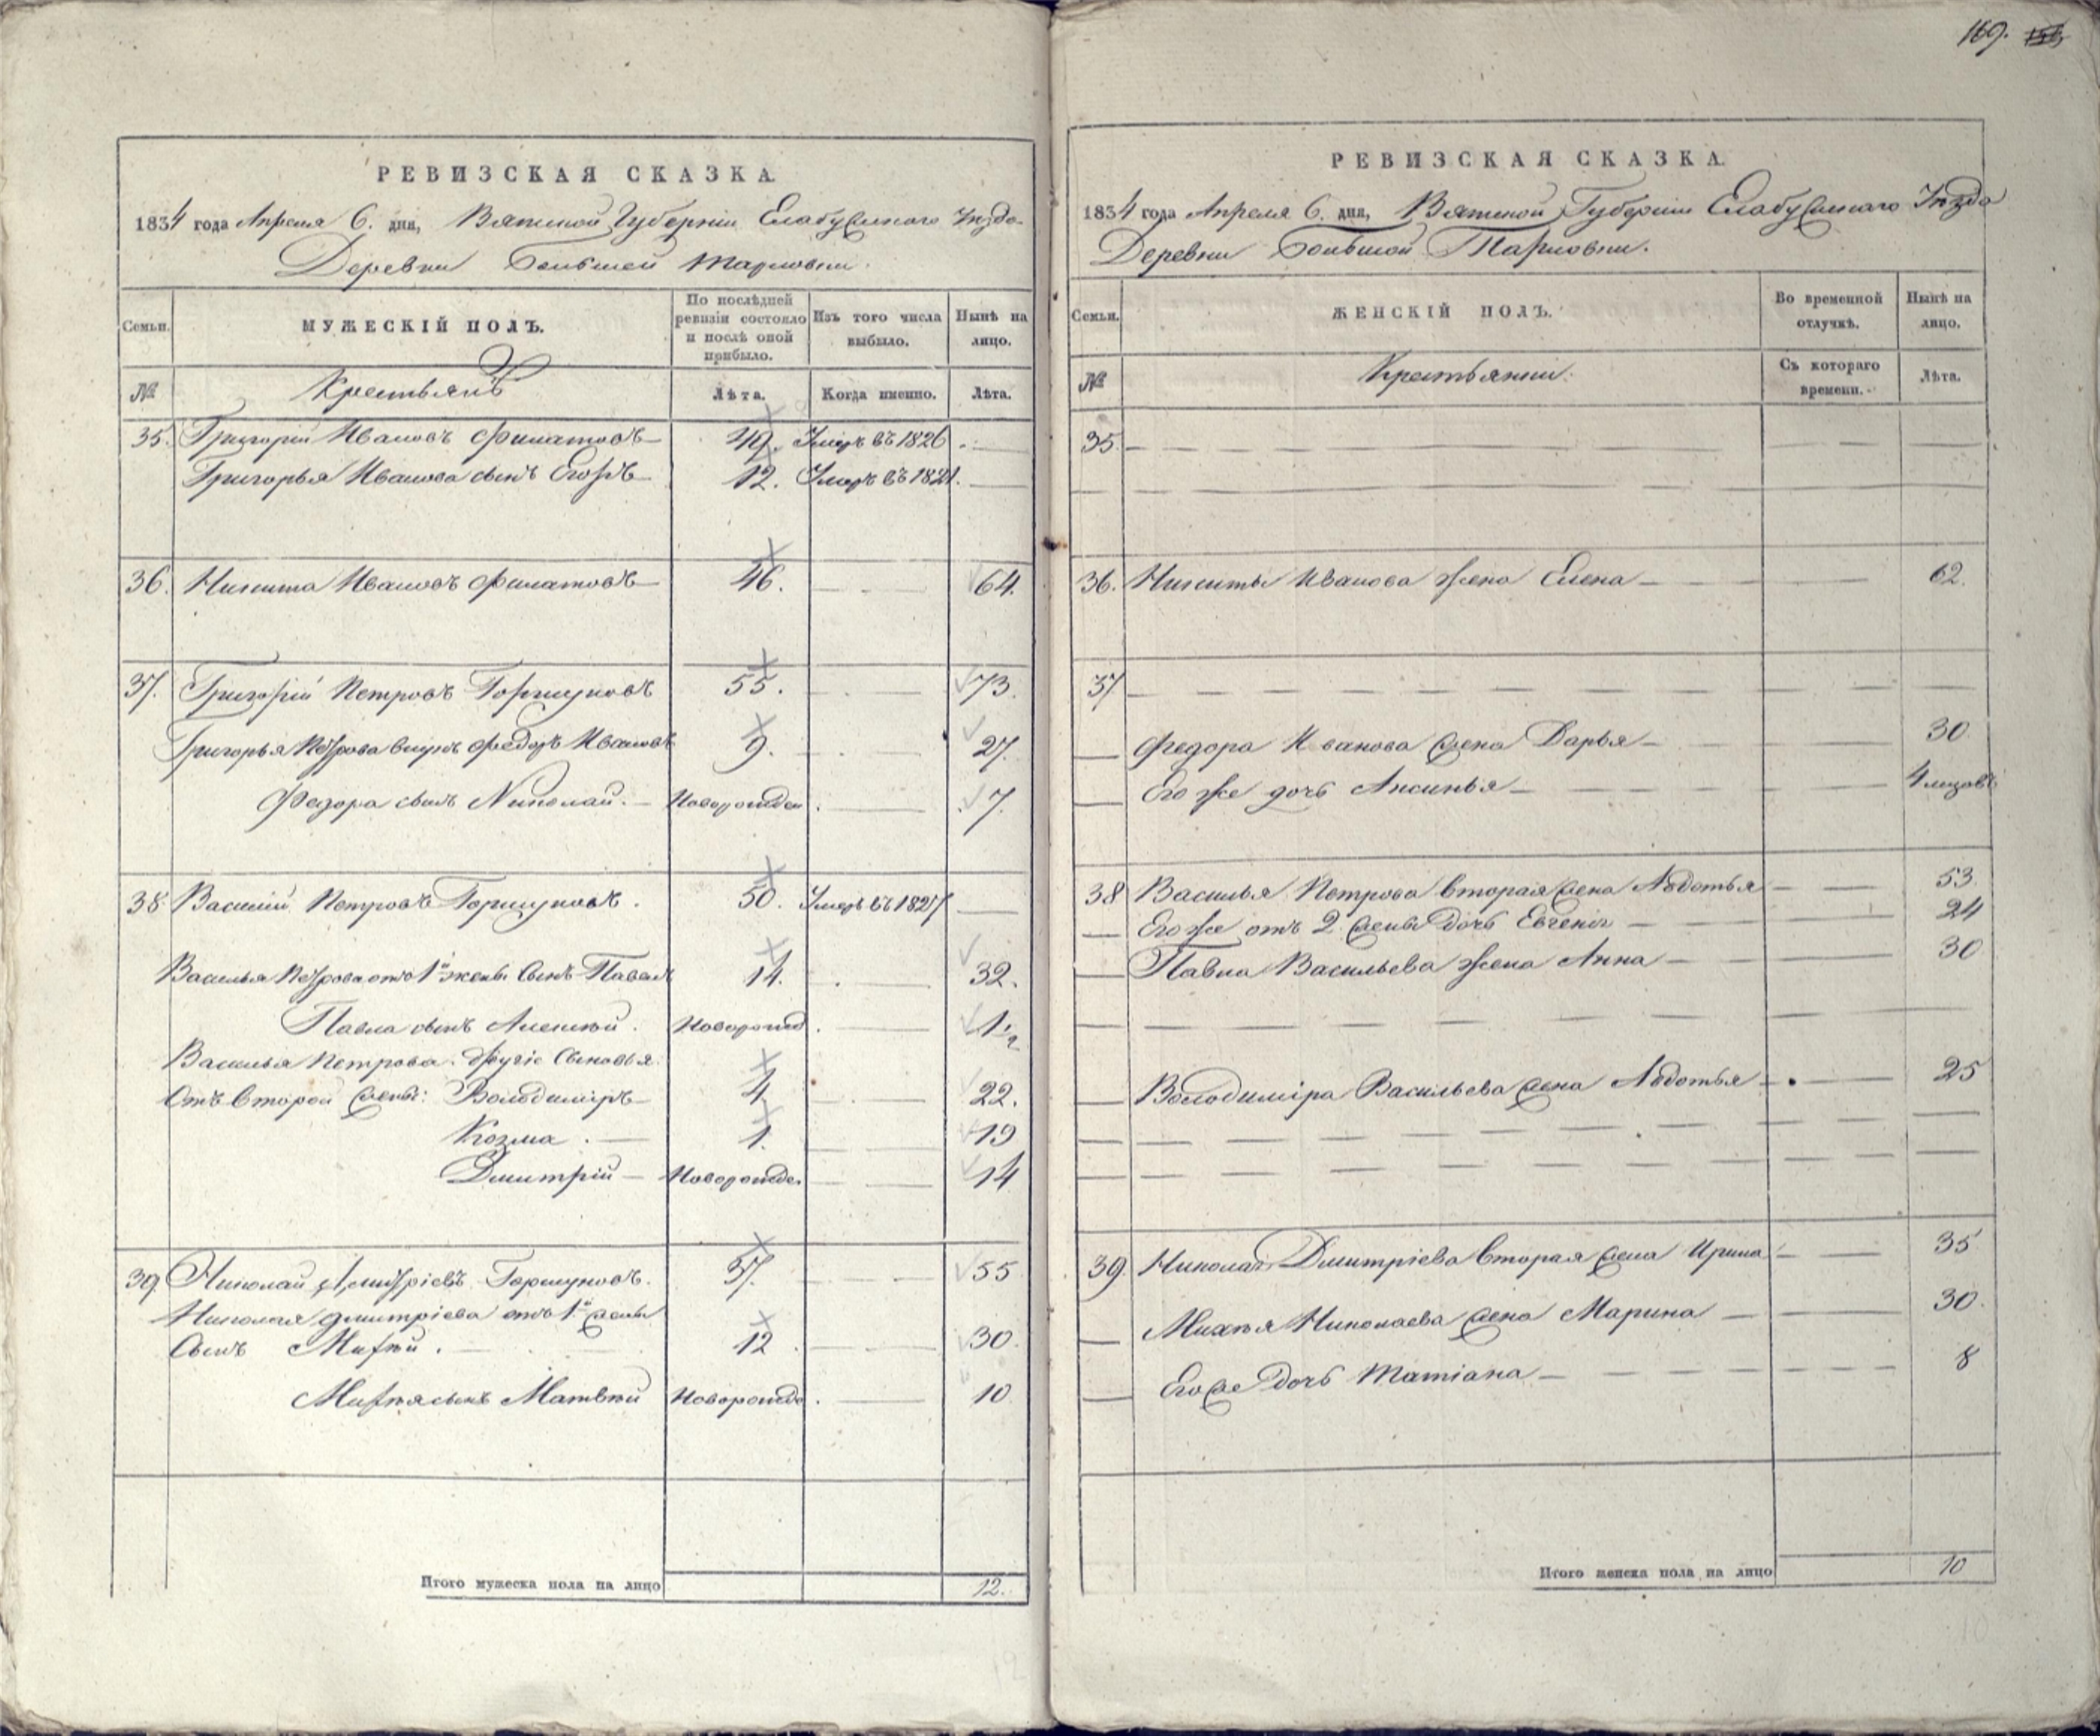 169.
РЕВИЗСКАЯ СКАЗКА.
1834 года Апреля 6. дня, Вятской Губерніи Елабужскаго Уѣзда
Деревни Большей Тарловки.
Семьи.
МУЖЕСКІЙ ПОЛЪ.
По послѣдней ревизіи состояло и послѣ оной прибыло.
Изъ того числа выбыло.
Нынѣ на лицо.
№
Крестьянъ
Лѣта.
Когда именно.
Лѣта.
35. Григорій Ивановъ Филатовъ 49. Умеръ въ 1826
Григорья Иванова сынъ Егоръ 12. Умеръ въ 1821.
36. Никита Ивановъ Филатовъ 46. 64.
37. Григорій Петровъ Горшуновъ 55. 73.
Григорья Петрова внукъ Федоръ Ивановъ 9. 27.
Федора сынъ Николай. Новорожден 7.
38 Василій Петровъ Горшуновъ. 50. Умеръ въ 1827
Василья Петрова отъ 1й жены сынъ Павелъ 14. 32.
Павла сынъ Алексѣй. Новорожд. 1/2
Василья Петрова другіе сыновья
отъ второй жены: Володимиръ 4. 22.
Козма. 1. 19
Дмитрій Новорожде. 14
39. Николай Дмитріевъ Горшуновъ. 37. 55
Николая Дмитріева отъ 1й жены
сынъ Михѣй. 12. 30.
Михѣя сынъ Матвѣй Новорожде. 10
Итого мужеска пола на лицо 12.
РЕВИЗСКАЯ СКАЗКА.
1834 года Апреля 6. дня, Вятской Губерніи Елабужскаго Уѣзда
Деревни Большой Тарловки.
Семьи.
ЖЕНСКІЙ ПОЛЪ.
Во временной отлучкѣ.
Нынѣ на лицо.
№
Крестьянки.
Съ котораго времени.
Лѣта.
35.
36. Никиты Иванова жена Елена 62.
37
Федора Иванова жена Дарья 30
Его же дочь Аксинья 4 месяцовъ
38 Василья Петрова вторая жена Авдотья 53.
Его же отъ 2 жены дочь Евгенія 24
Павла Васильева жена Анна 30
Володиміра Васильева жена Авдотья 25
39. Николая Дмитріева вторая жена Ирина 35
Михѣя Николаева жена Марина 30.
Его же дочь Татіана 8
Итого женска пола на лицо 10